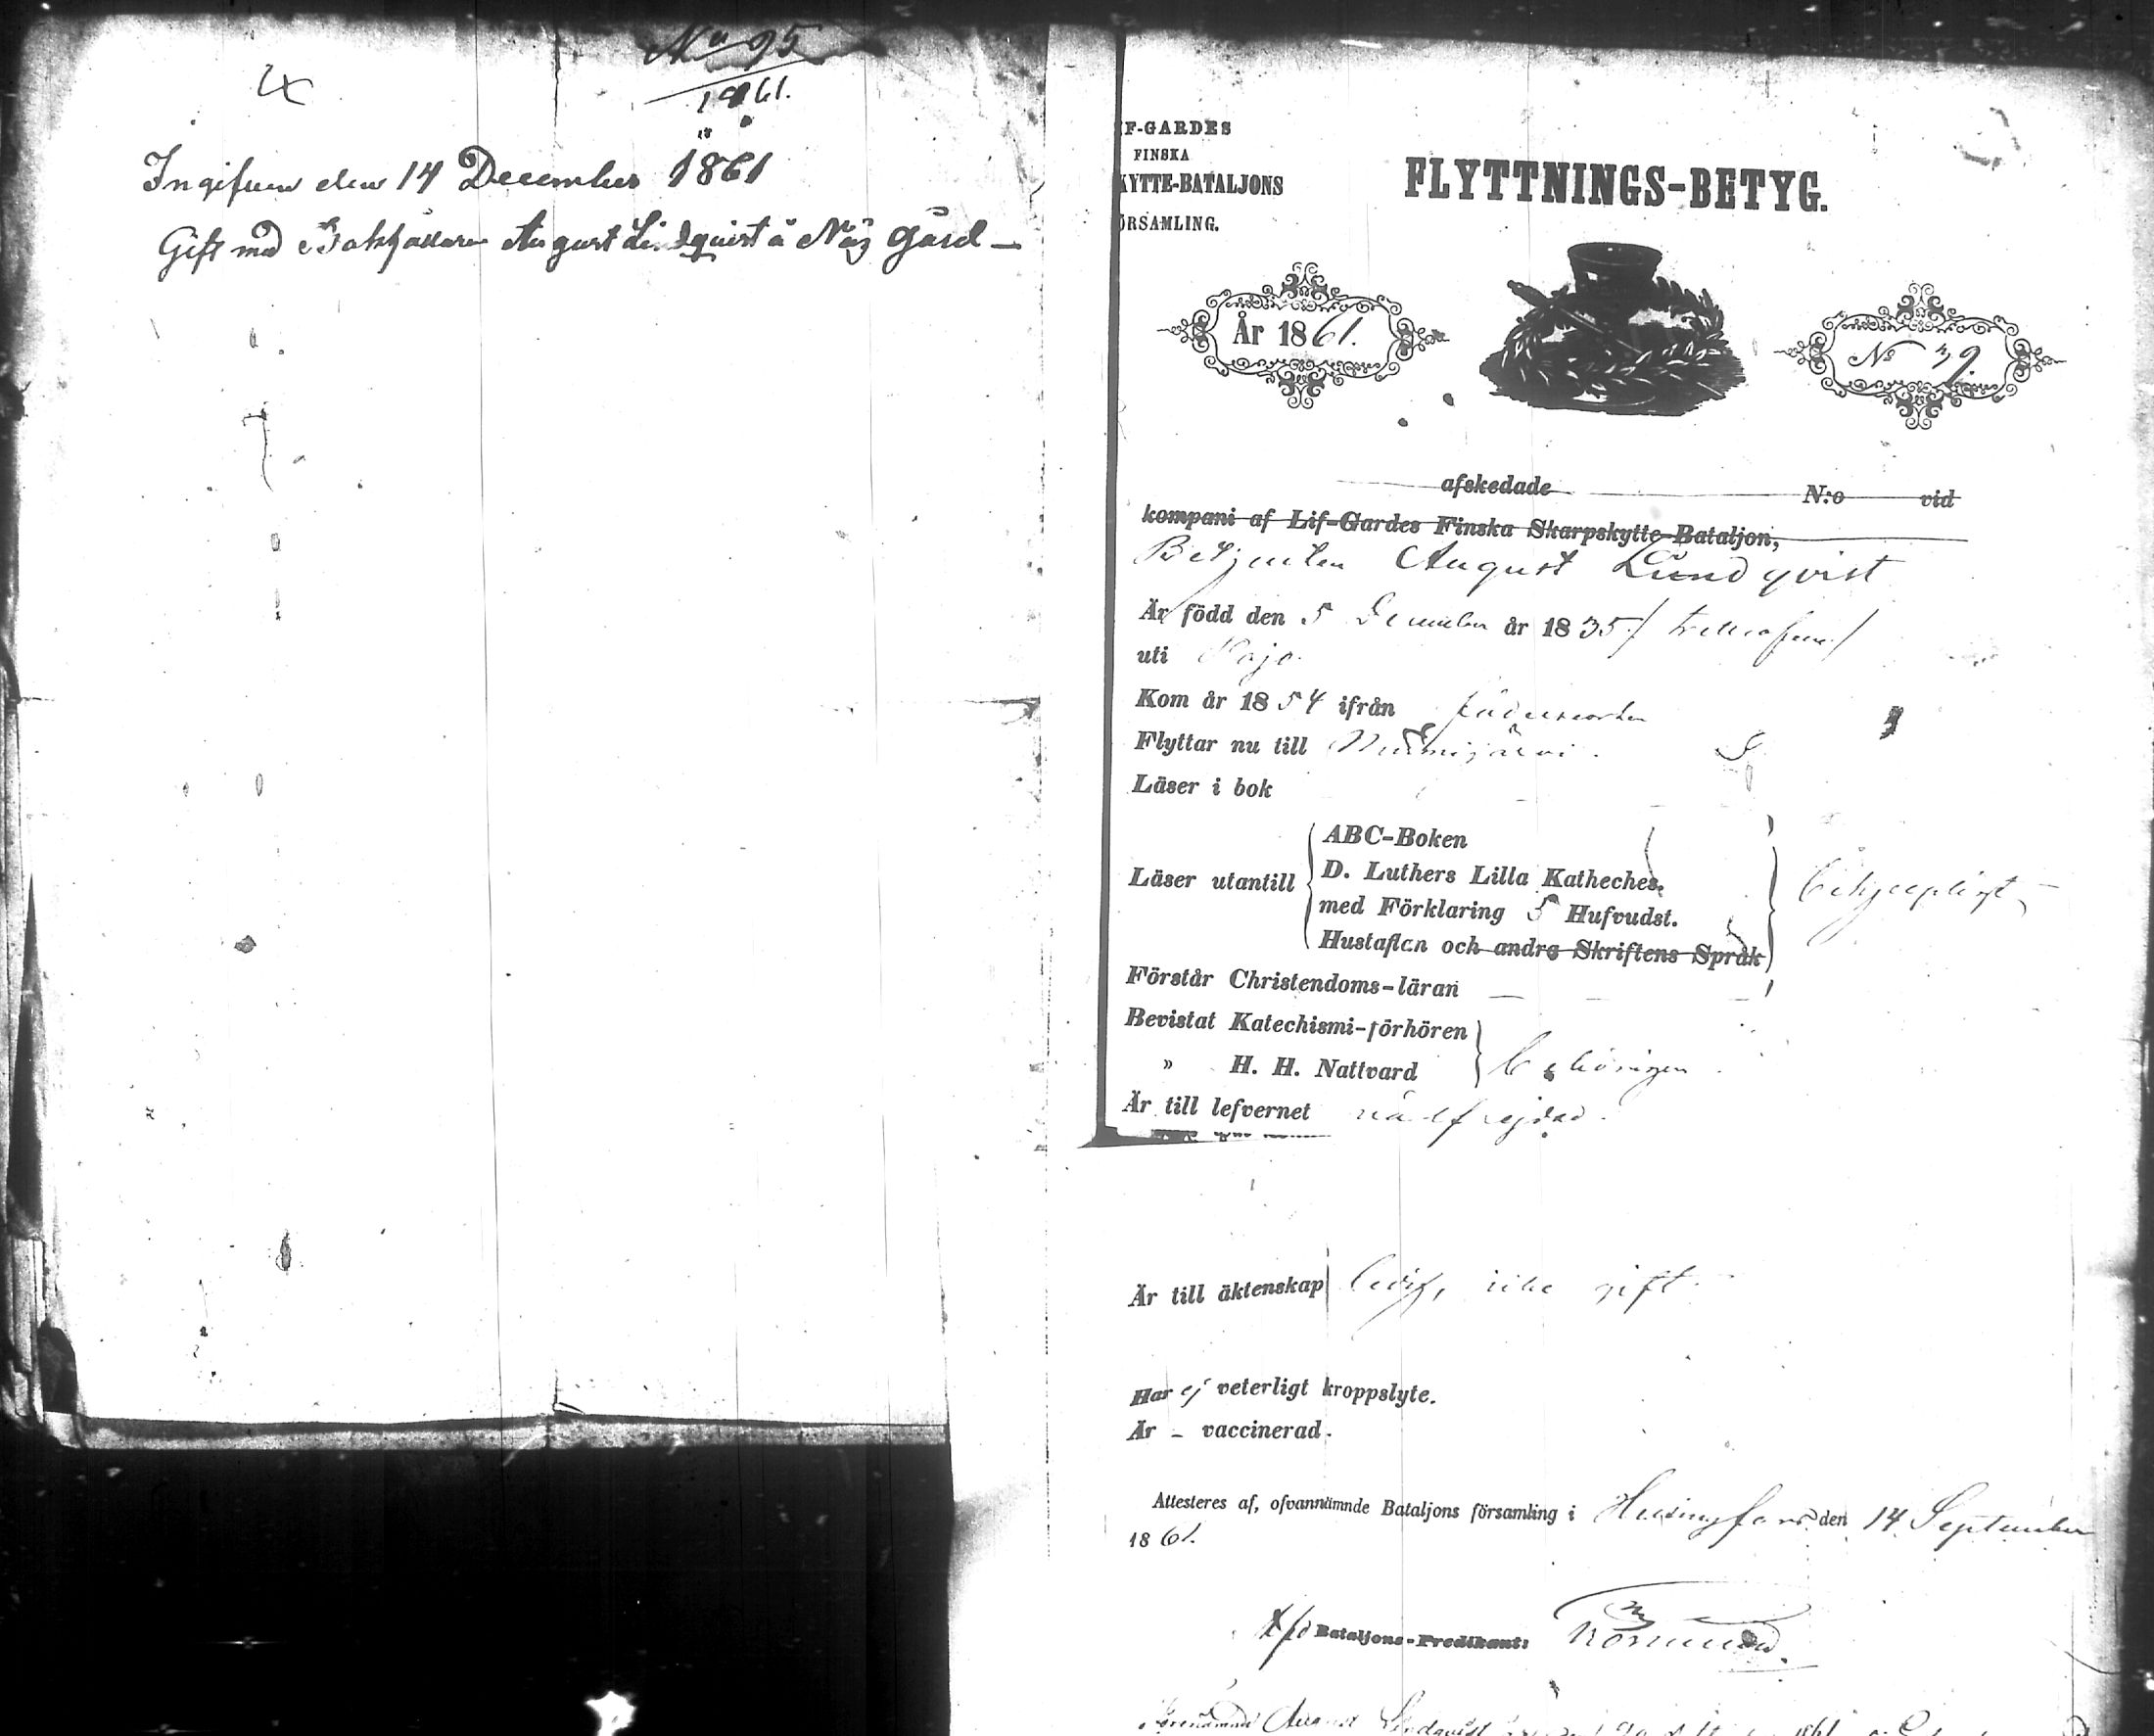 No 95
1861.
Ingifven den 14 December 1861
Gift med Bokhållaren August Lindquist å Näs gård
F-GARDES
FINSKA
KYTTE-BATALJONS
ÖRSAMLING.
FLYTTNINGS-BETYG.
År 1861.
No 49
afskedade N:o vid
kompani af Lif-Gardes Finska Skarpskytte-Bataljon,
Betjenten August Lindqvist
Är född den 5 December år 1835 / trettiofem /
uti Pojo.
Kom år 1854 ifrån födelseorten
Flyttar nu till Nurmijärvi.
Läser i bok
ABC-Boken
Läser utantill D. Luthers Lilla Kateches.
med Förklaring 5 Hufvudst.
Hustaflan och andra Skriftens Språk
Förstår Christendoms-läran
Bevistat Katechismi-förhören
» H. H. Nattvard behörigen
Är till lefvernet välfrejdad.
Är till äktenskap ledig, icke gift
Har ej veterligt kroppslyte.
Är - vaccinerad.
Attesteres af, ofvannämnde Bataljons församling i Helsingfors den 14 September
1861.
Bataljons-Predikant:
August Lindqvist 1861